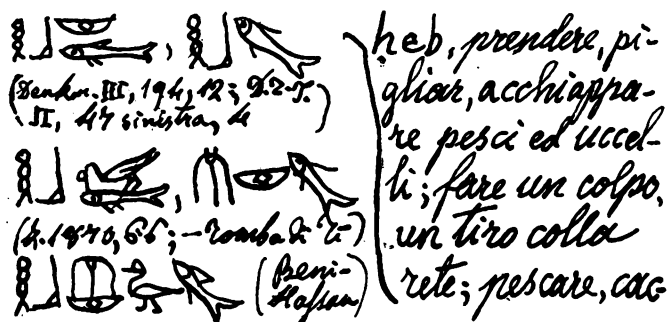 (Denkm. III, 194, 12;
II, 47 sinistra, 4)
1870, 66; — Tomba di Ti)
(Beni-
Hassan)
heb, prendere, pi-
gliar, acchiappa-
re pesci ed uccel-
li; fare un colpo,
un tiro colla
rete; pescare, cac-